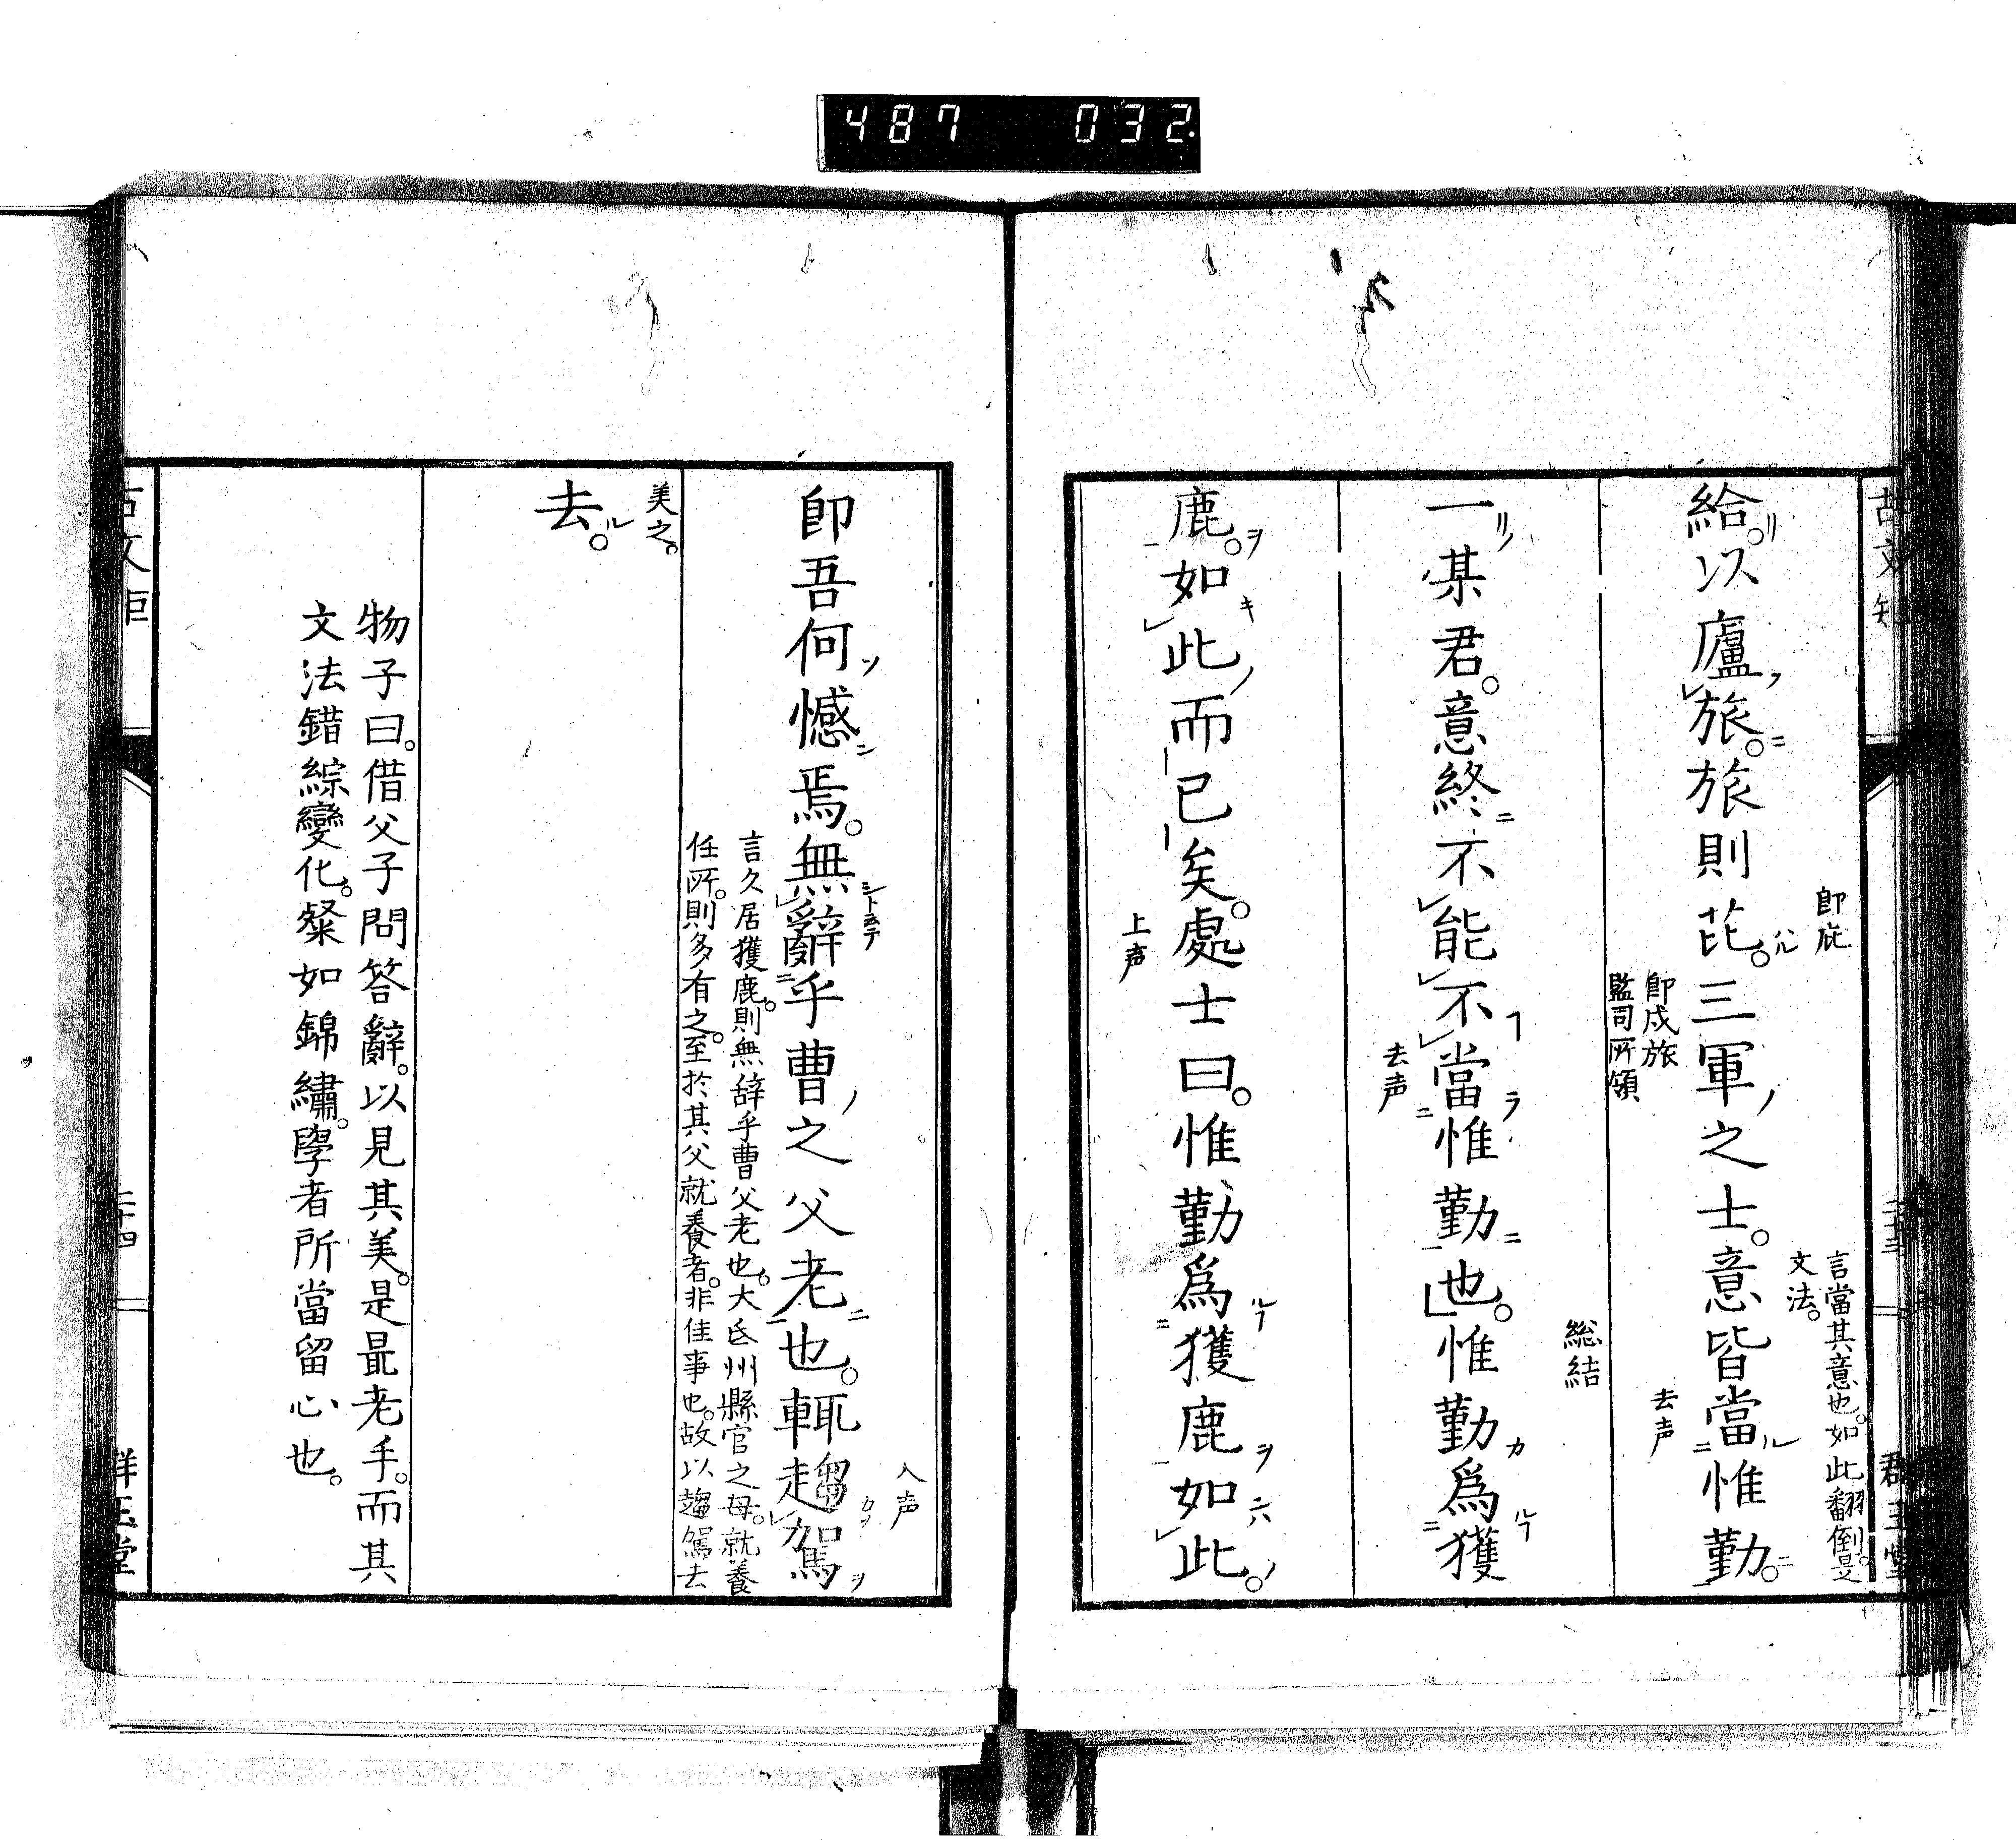 487 032
給。以廬旅。旅則芘。三軍之士。意皆當惟勤。
即庇
即戍旅
監司所領
言當其意也。如此翻倒。是
文法。
去声
一某君。意終不能不當惟勤也。惟勤爲獲
去声
総結
鹿。如此而已矣。處士曰。惟勤爲獲鹿如此。
上声
即吾何憾焉。無辭乎曹之父老也。輒趨駕
入声
言久居獲鹿。則無辞乎曹父老也。大氐州縣官之母。就養
任所。則多有之。至於其父就養者。非佳事也。故以趨駕去
美之。
去。
物子曰。借父子問答辭。以見其美。是最老手。而其
文法錯綜變化。粲如錦繡。學者所當留心也。
二十四
群玉堂